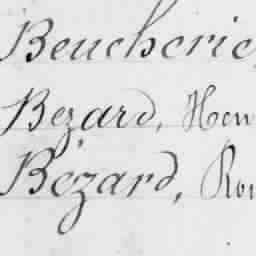 Beucherie
Bezard, Hen
Bézard, Ro